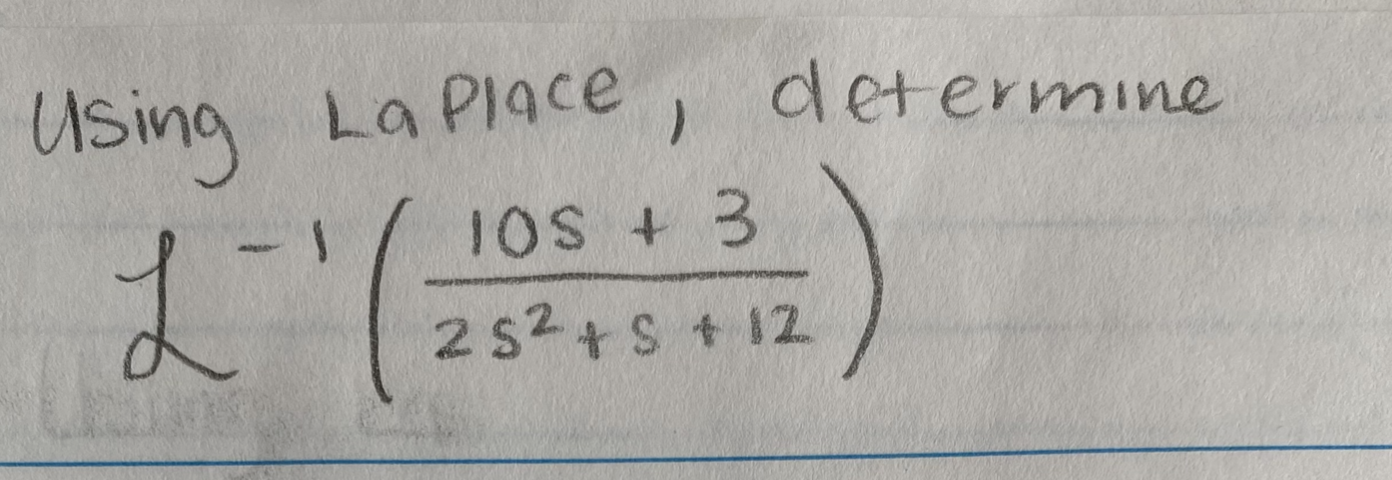 Using LaPlace, determine
ℒ⁻¹ ( (10s + 3) / (2s² + s + 12) )